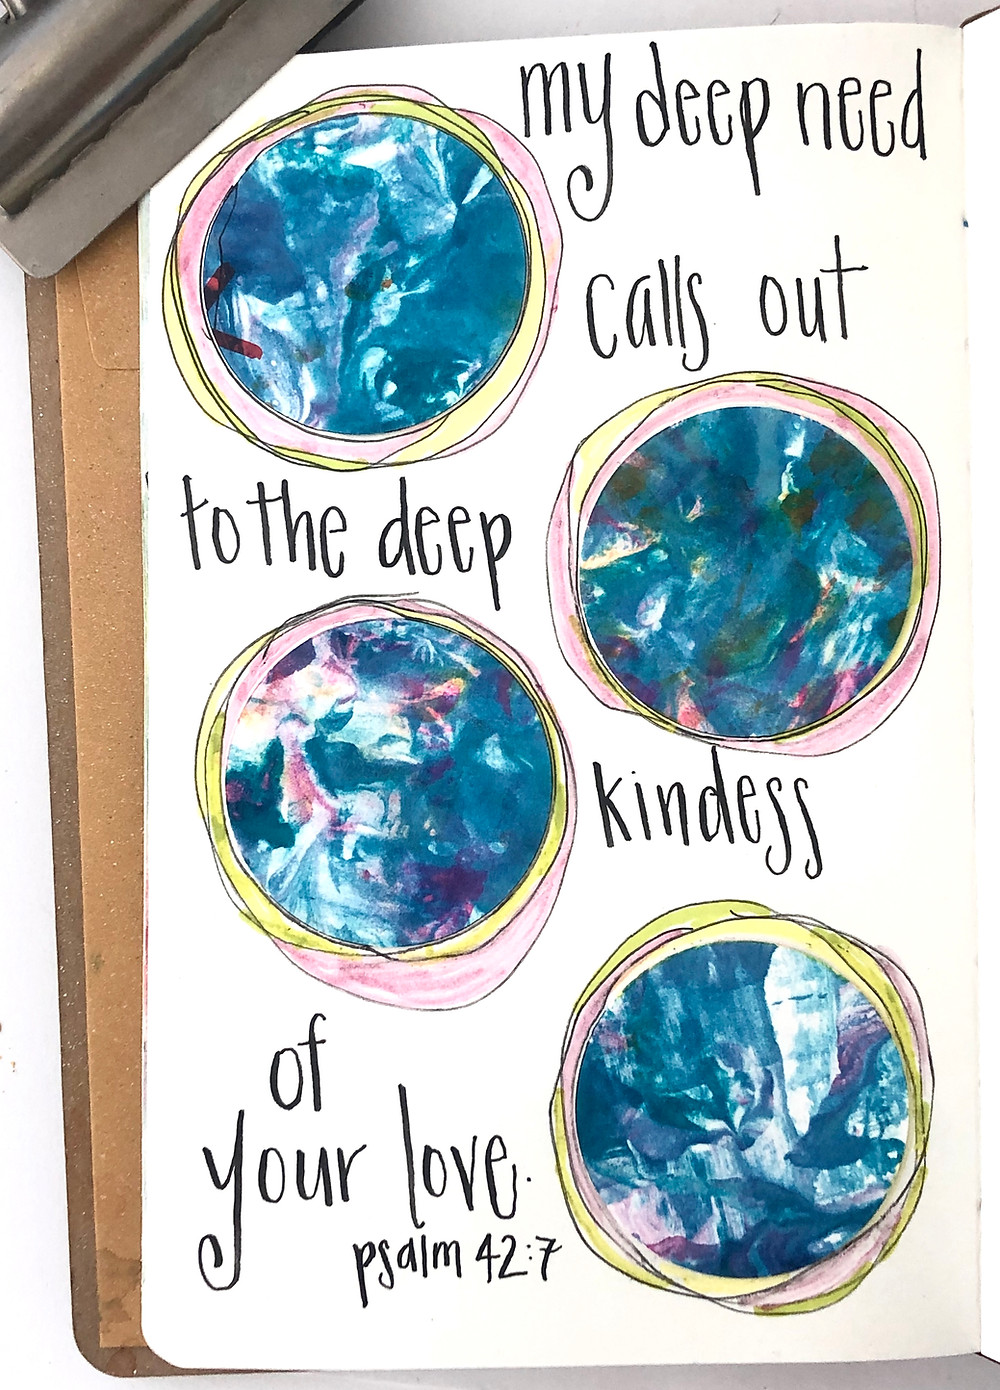 my deep need
calls out
to the deep
kindess
of
your love.
psalm 42:7